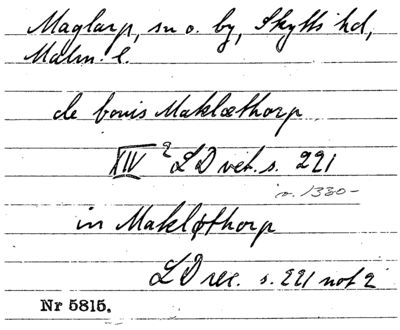 Maglarp, sn o. by, Skytts hd,
Malm. l.
de bonis Maklæthorp
XIV 2 LD vet. s. 221
n. 1330-
in Makløthorp
LD rec. s. 221 not 2
Nr 5815.